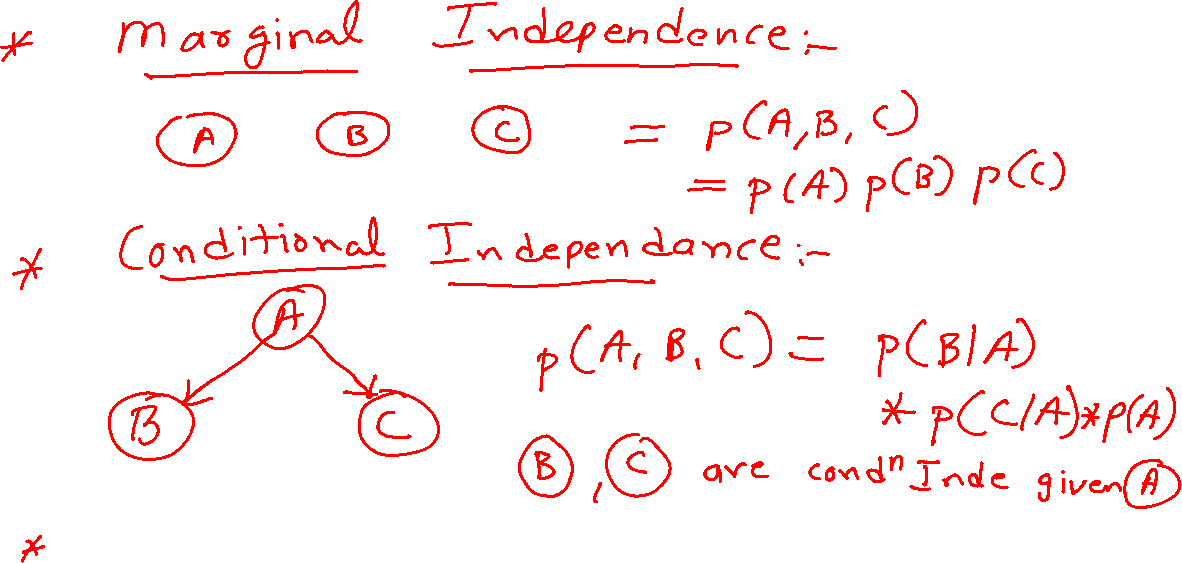 * Marginal Independence:-
A B C = P(A,B,C)
= P(A) P(B) P(C)
* Conditional Independance:-
A
P(A, B, C) = P(B|A)
B C * P(C/A)*P(A)
B, C are condⁿ Inde given A
*